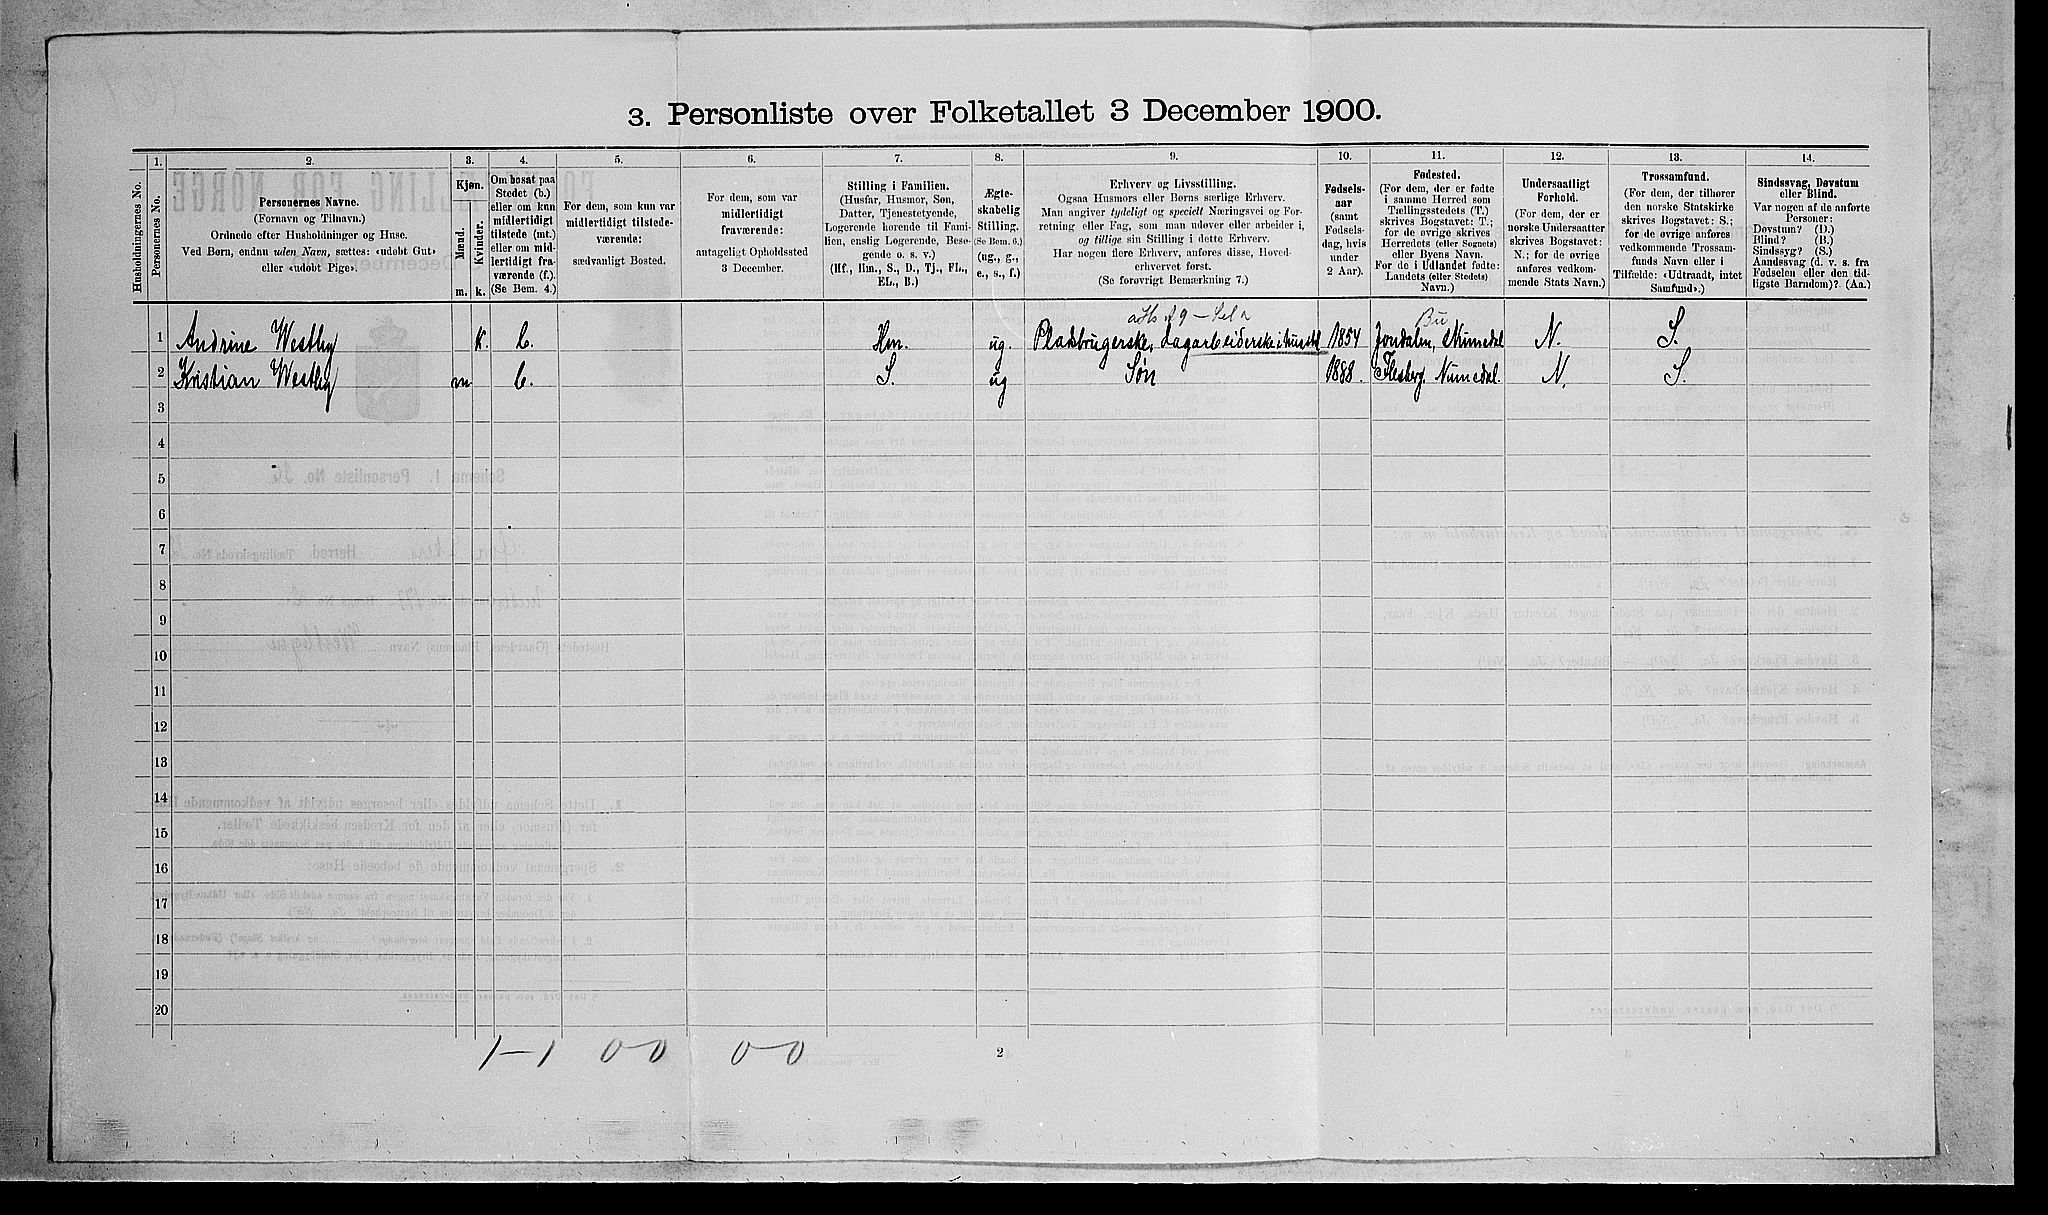 3. Personliste over Folketallet 3 December 1900.
Husholdningernes No.
1.
Personernes No.
2.
Personernes Navne.
(Fornavn og Tilnavn.)
Ordnede efter Husholdninger og Huse.
Ved Børn, endnu uden Navn, sættes: «udøbt Gut»
eller «udøbt Pige».
3.
Kjøn.
Mænd.
Kvinder.
m.
k.
4.
Om bosat paa
Stedet (b.)
eller om kun
midlertidigt
tilstede (mt.)
eller om mid-
lertidigt fra-
værende (f.).
(Se Bem. 4.)
5.
For dem, som kun var
midlertidigt tilstede-
værende:
sædvanligt Bosted.
6.
For dem, som var
midlertidigt
fraværende:
antageligt Opholdssted
3 December.
7.
Stilling i Familien.
(Husfar, Husmor, Søn,
Datter, Tjenestetyende,
Logerende hørende til Fami-
lien, enslig Logerende, Besø-
gende o. s. v.)
(Hf., Hm., S., D., Tj., FL.,
EL., B.)
8.
Ægte-
skabelig
Stilling.
(Se Bem. 6.)
(ug., g.,
e., s., f.)
9.
Erhverv og Livsstilling.
Ogsaa Husmors eller Børns særlige Erhverv.
Man angiver tydeligt og specielt Næringsvei og For-
retning eller Fag, som man udøver eller arbeider i,
og tillige sin Stilling i dette Erhverv.
Har nogen flere Erhverv, anføres disse, Hoved-
erhvervet først.
(Se forøvrigt Bemærkning 7.)
10.
Fødsels-
aar
(samt
Fødsels-
dag, hvis
under
2 Aar).
11.
Fødested.
(For dem, der er fødte
i samme Herred som
Tællingsstedets (T.)
skrives Bogstavet: T.;
for de øvrige skrives
Herredets (eller Sognets)
eller Byens Navn.
For de i Udlandet fødte:
Landets (eller Stedets)
Navn.)
12.
Undersaatligt
Forhold.
(For dem, der er
norske Undersaatter
skrives Bogstavet:
N.; for de øvrige
anføres vedkom-
mende Stats Navn.)
13.
Trossamfund.
(For dem, der tilhører
den norske Statskirke
skrives Bogstavet: S.;
for de øvrige anføres
vedkommende Trossam-
funds Navn eller i
Tilfælde: «Udtraadt, intet
Samfund».)
14.
Sindssvag, Døvstum
eller Blind.
Var nogen af de anførte
Personer:
Døvstum? (D.)
Blind? (B.)
Sindssyg? (S.)
Aandssvag (d. v. s. fra
Fødselen eller den tid-
ligste Barndom)? (Aa.)
Bu
1 Andrine Westby k. b. Hm. ug. Pladsbrugerske, dagarbeiderske i huset 1854 Jondalen, Numedal N. S.
2 Kristian Westby m b. S. ug Søn 1888. Flesberg. Numedal. N. S.
3
4
5
6
7
8
9
10
11
12
13
14
15
16
17
18
19
20
1-1 0-0 0-0
2